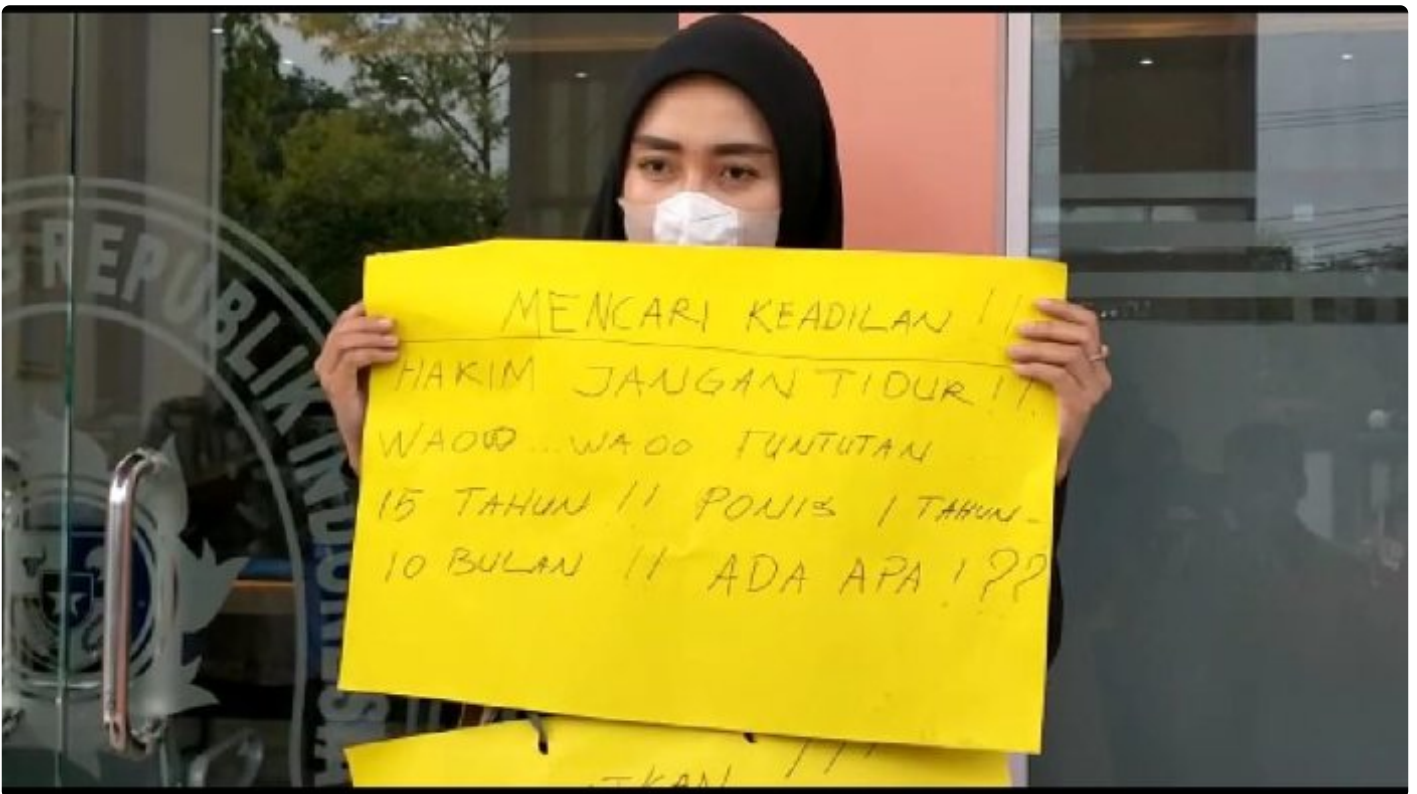 REPUBLIK INDONESIA
MENCARI KEADILAN !!
HAKIM JANGAN TIDUR !!
WAOO...WAOO TUNTUTAN
15 TAHUN !! PONIS 1 TAHUN-
10 BULAN !! ADA APA !??